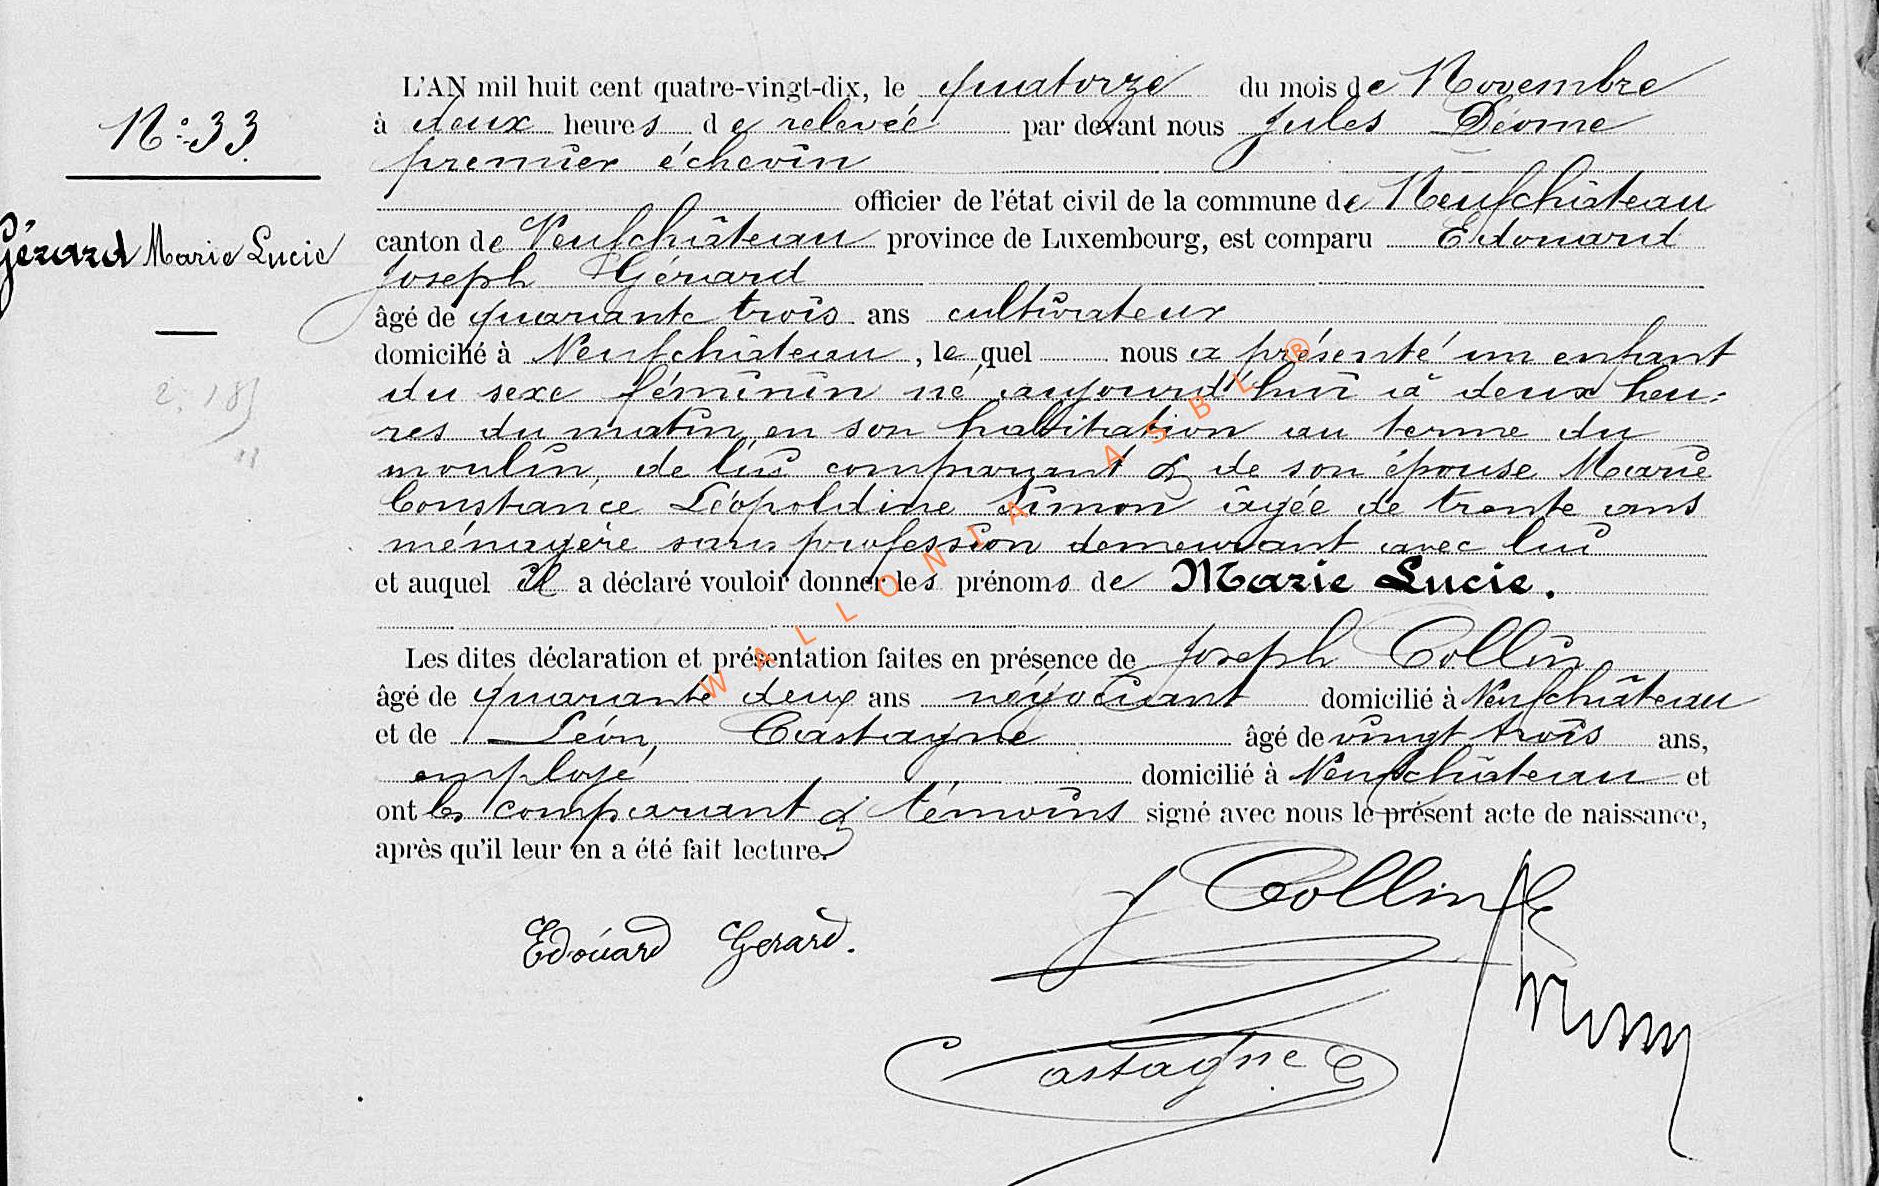 N° 33.
Gérard Marie Lucie
L'AN mil huit cent quatre-vingt-dix, le quatorze du mois de Novembre
à deux heures de relevée par devant nous Jules Déome
premier échevin
officier de l'état civil de la commune de Neufchâteau
canton de Neufchâteau province de Luxembourg, est comparu Edouard
Joseph Gérard
âgé de quarante trois ans cultivateur
domicilié à Neufchâteau, le quel nous a présenté un enfant
du sexe féminin né aujourd'hui à deux heu-
res du matin, en son habitation au terme du
moulin, de lui comparant & de son épouse Marie
Constance Léopoldine Simon âgée de trente ans
ménagère sans profession demeurant avec lui
et auquel il a déclaré vouloir donner les prénoms de Marie Lucie.
Les dites déclaration et présentation faites en présence de Joseph Collin
âgé de quarante deux ans négociant domicilié à Neufchâteau
et de Léon, Castagne âgé de vingt trois ans,
employé domicilié à Neufchâteau et
ont les comparant & témoins signé avec nous le présent acte de naissance,
après qu'il leur en a été fait lecture.
J Collin
Edouard Gerard.
Castagne
WALLONIA ASBL ®